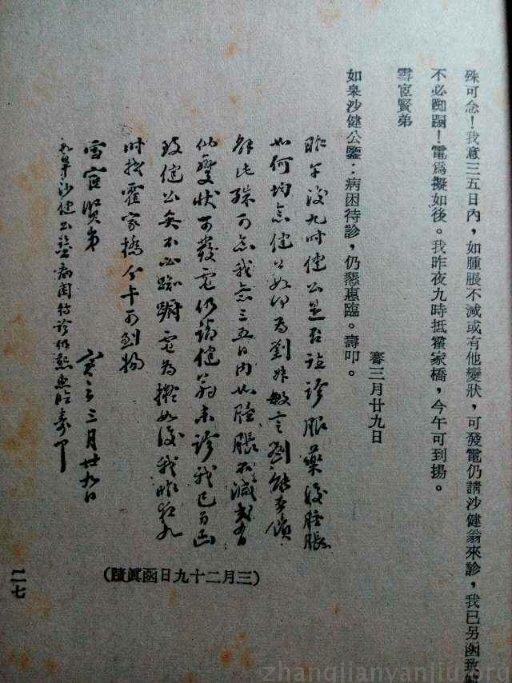 殊可念！我意三五日內，如腫脹不減或有他變狀，可發電仍請沙健翁來診，我已另函致
不必踟躕！電爲擬如後。我昨夜九時抵霍家橋，今午可到揚。
雪宧賢弟
謇三月廿九日
如皋沙健公鑒：病困待診，仍懇惠臨。壽叩。
昨午後九時健公是否診服藥後腫脹
如何均念健公如仍為劉
殊可念我意三五日內如腫脹不減或有
他變狀可發電仍請健翁來診我已另函
致健公矣不必踟躕電為擬如後我昨夜九
時抵霍家橋今午可到揚
雪宧賢弟
謇三月廿九日
如皋沙健公鑒病困待診仍懇惠臨壽叩
（三月二十九日函眞蹟）
二七
zhangjianyanjiu.org